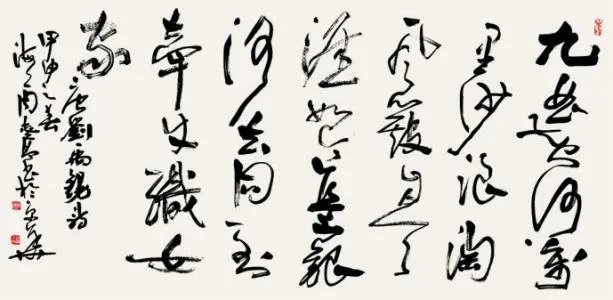 九曲黄河萬
里沙浪淘
風簸自天
涯如今直上銀
河去同到
牽牛織女
家
唐劉禹錫詩
甲申之春